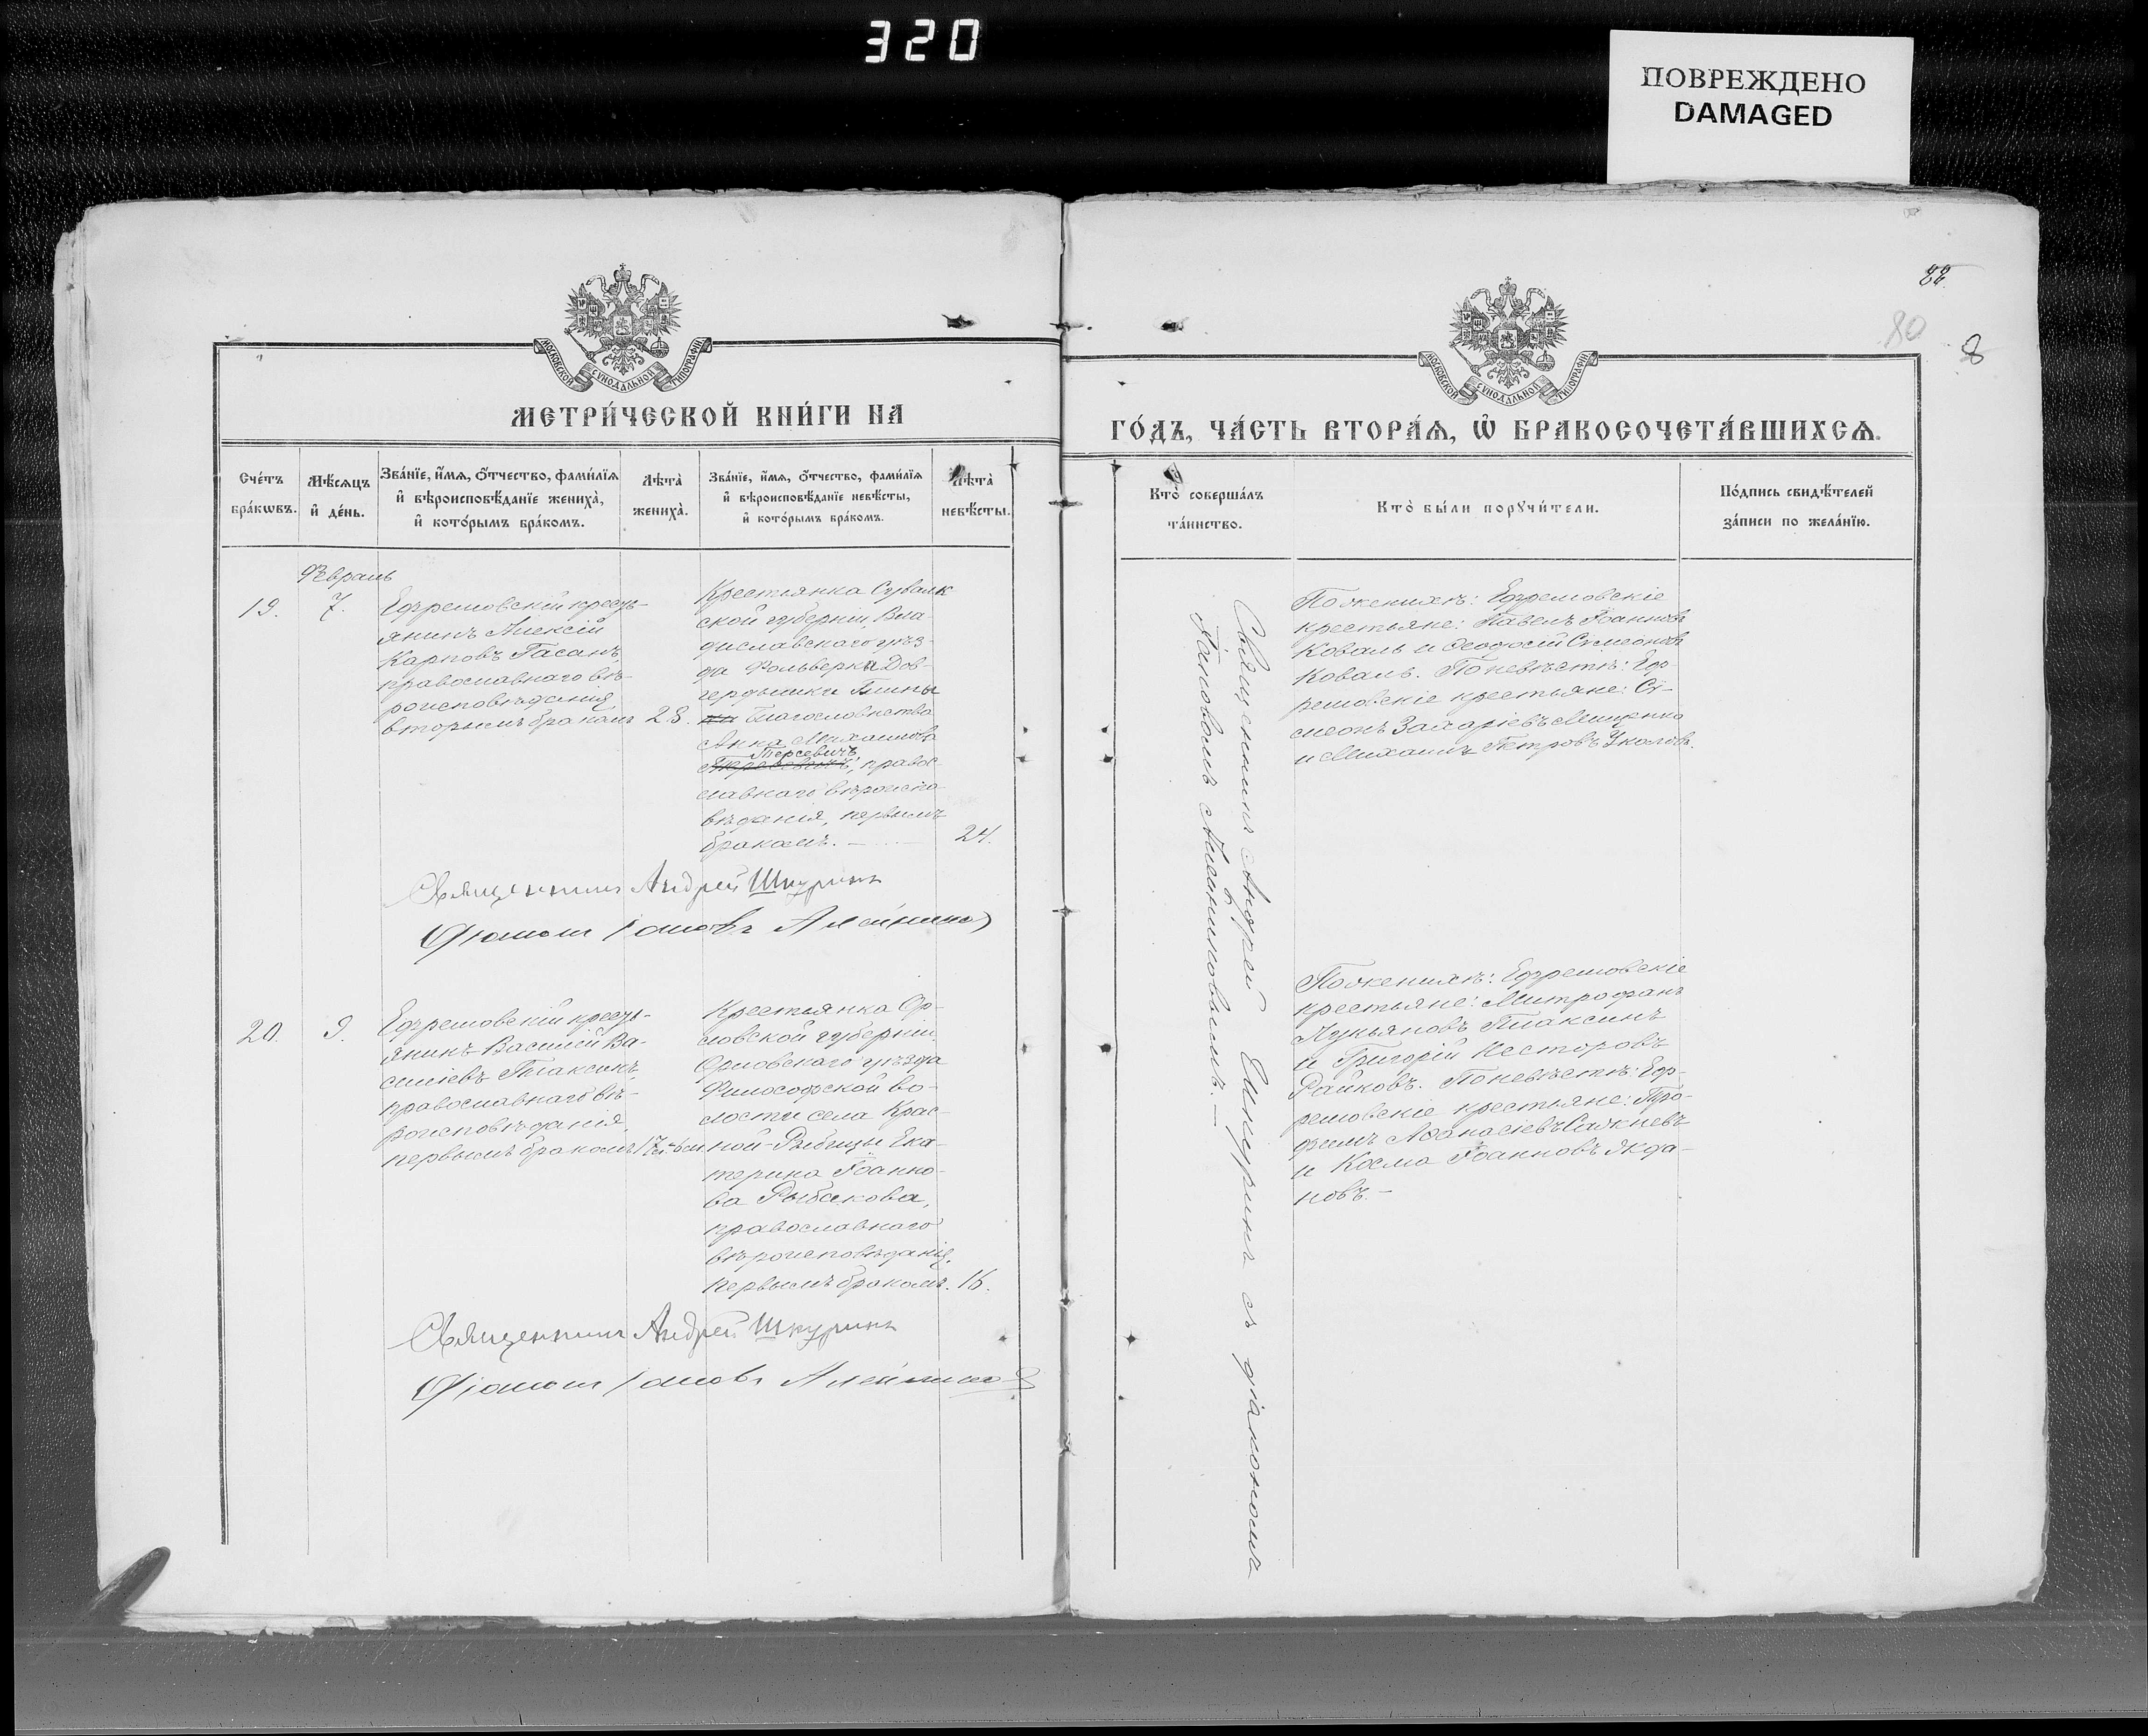 320
ПОВРЕЖДЕНО
DAMAGED
МОСКОВСКОЙ СУНОДАЛЬНОЙ ТИПОГРАФІИ
МЕТРИ́ЧЕСКОЙ КНИ́ГИ НА
Сче́тъ бра́кѡвъ.
Мѣ́сяцъ и҆ де́нь.
Зва́нїе, и҆́мѧ, ѻ҆́тчество, фами́лїѧ
и҆ вѣроисповѣ́данїе жениха̀,
и҆ кото́рымъ бра́комъ.
Лѣта̀ жениха̀.
Зва́нїе, и҆́мѧ, ѻ҆́тчество, фами́лїѧ
и҆ вѣроисповѣ́данїе невѣ́сты,
и҆ кото́рымъ бра́комъ.
Лѣта̀ невѣ́сты.
Февраль
19.
7.
Ефремовскій кресть-
янинъ Алексій
Карповъ Гасанъ,
православнаго вѣ-
роисповѣданія
вторымъ бракомъ
28.
Крестьянка Сувалк
ской губерніи, Вла-
диславскаго уѣз-
да Фольверка Дов-
гердышки Гмины
Благословенства
Анна Михаилова
Терсевичъ,
правос-
лавнаго вѣроиспо-
вѣданія, первымъ
бракомъ. —
24.
Священникъ Андрей Шкуринъ
Діаконъ Іаковъ Алейников
20.
9.
Ефремовскій кресть-
янинъ Василій Ва-
силіевъ Плаксинъ,
православнаго вѣ-
роисповѣданія,
первымъ бракомъ
17
Крестьянка Ор-
ловской губерніи
Орловскаго уѣзда
Философской во-
лости села Крас-
ной-Рыбицы Ека-
терина Іоанно-
ва Рыбакова,
православнаго
вѣроисповѣданія,
первымъ бракомъ.
16.
Священникъ Андрей Шкуринъ
Діаконъ Іаковъ Алейников
80
8
МОСКОВСКОЙ СУНОДАЛЬНОЙ ТИПОГРАФІИ
ГО́ДЪ, ЧА́СТЬ ВТОРА́Ѧ, Ѡ҆ БРАКОСОЧЕТА́ВШИХСѦ.
Кто̀ соверша́лъ
та́инство.
Кто̀ бы́ли порꙋчи́тели.
По́дпись свидѣ́телей
за́писи по жела́нїю.
Священникъ Андрей Шкуринъ съ діакономъ
Іаковомъ Алейниковымъ. —
По женихѣ: Ефремовскіе
крестьяне: Павелъ Іоанновъ
Коваль и Ѳеодосій Сѵмеоновъ
Коваль. По невѣстѣ: Еф-
ремовскіе крестьяне: Сѵ-
меонъ Захаріевъ Мищенко
и Михаилъ Петровъ Уколовъ.
По женихѣ: Ефремовскіе
крестьяне: Митрофанъ
Лукьяновъ Плаксинъ
и Григорій Несторовъ
Райковъ. По невѣстѣ: Еф-
ремовскіе крестьяне: Тро-
фимъ Аѳанасіевъ
и Косма Іоанновъ Жда-
новъ. —